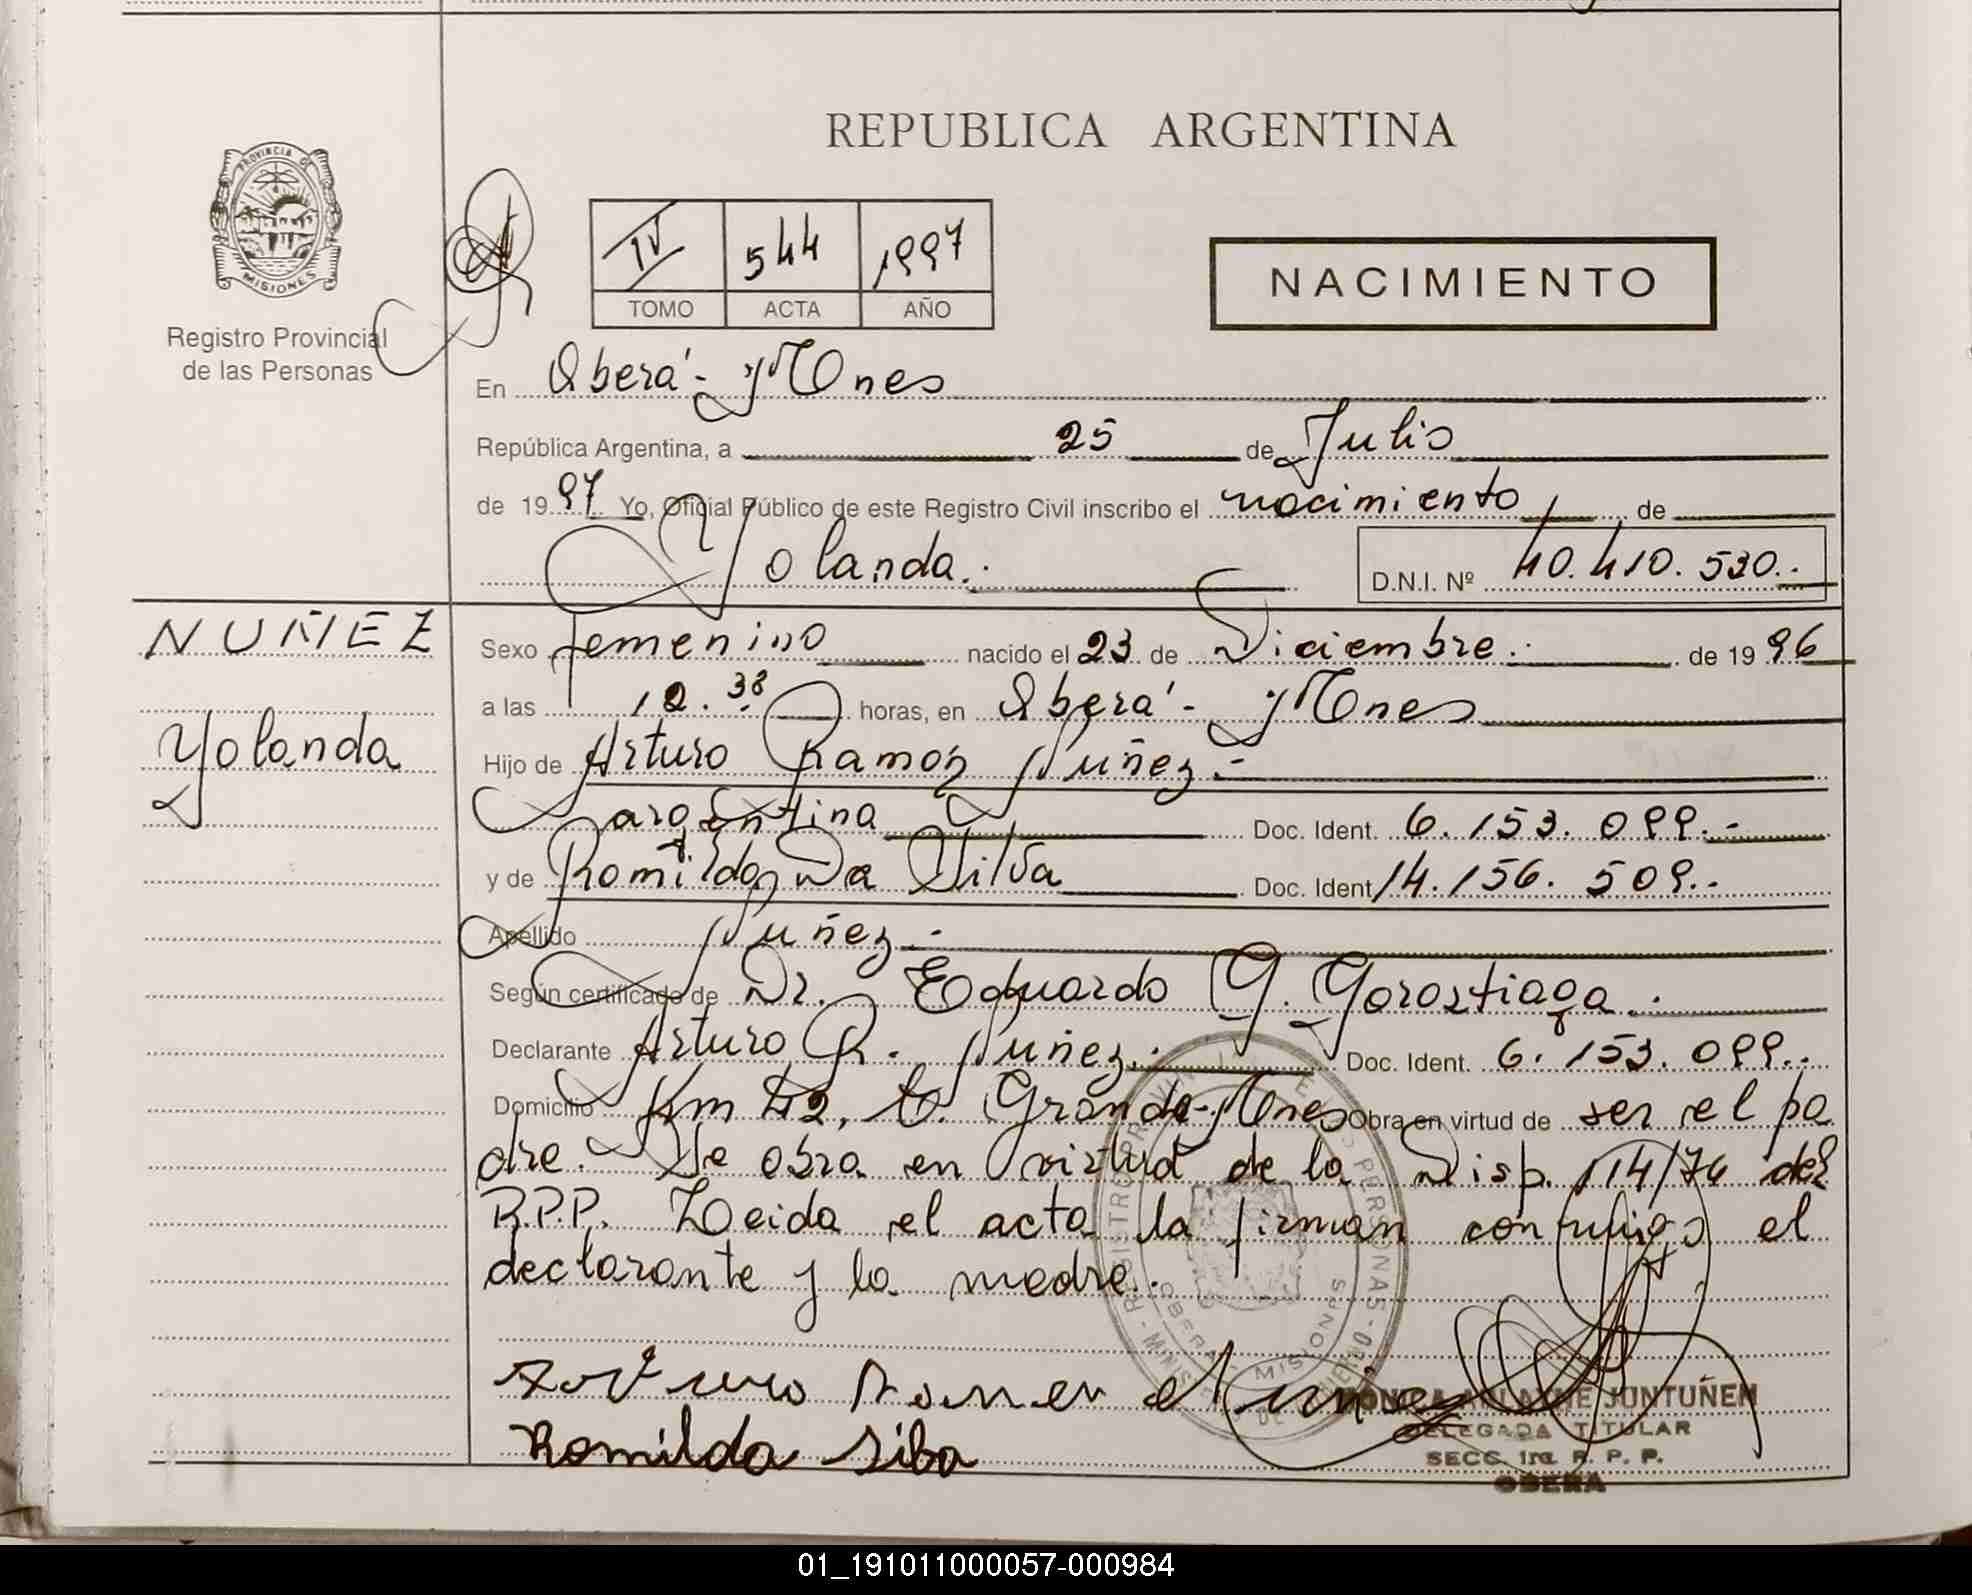 REPUBLICA ARGENTINA
PROVINCIA DE
MISIONES
Registro Provincial
de las Personas
IV 544 1997
TOMO ACTA AÑO
NACIMIENTO
En Oberá - Mnes
República Argentina, a 25 de Julio
de 1997 Yo, Oficial Público de este Registro Civil inscribo el nacimiento de
Yolanda.- D.N.I. Nº 40.410.530.-
NUÑEZ
Yolanda
Sexo femenino nacido el 23 de Diciembre.- de 1996
a las 12.38 horas, en Oberá - Mnes
Hijo de Arturo Ramón Núñez.-
argentina Doc. Ident. 6.153.099.-
y de Romilda Da Silva Doc. Ident 14.156.509.-
Apellido Núñez.-
Según certificado de Dr. Eduardo G. Gorostiaga.
Declarante Arturo R. Núñez.- Doc. Ident. 6.153.099.-
Domicilio Km 42, C. Grande-Mnes Obra en virtud de ser el pa
dre. Se obra en virtud de la Disp. 114/76 del
R.P.P. Leida el acta la firman conmigo el
declarante y la madre.-
Arturo Ramon Nuñez
Romilda Silba
JUNTUÑEN
DELEGADA TITULAR
SECC. 1ra R. P. P.
OBERA
01_191011000057-000984